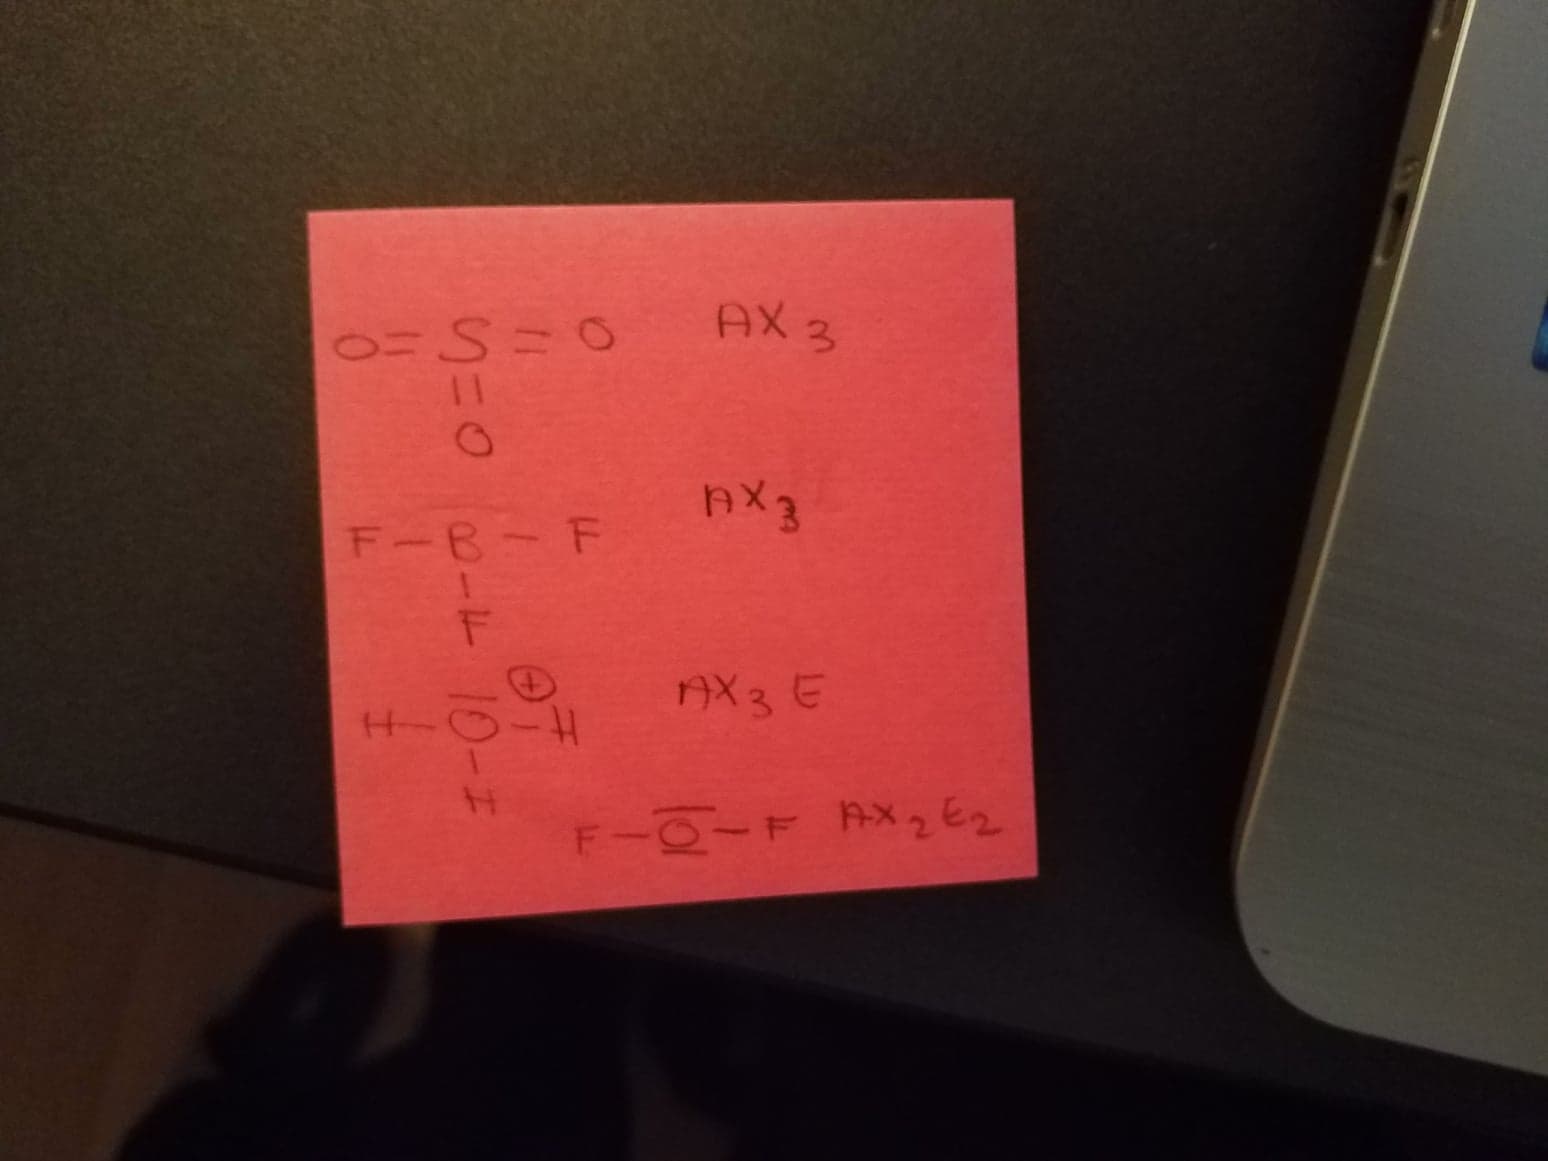 O=S=O AX3
||
O
F-B-F AX3
|
F
⊕
H-O̅-H AX3E
|
H
F-O̲̅-F AX2E2